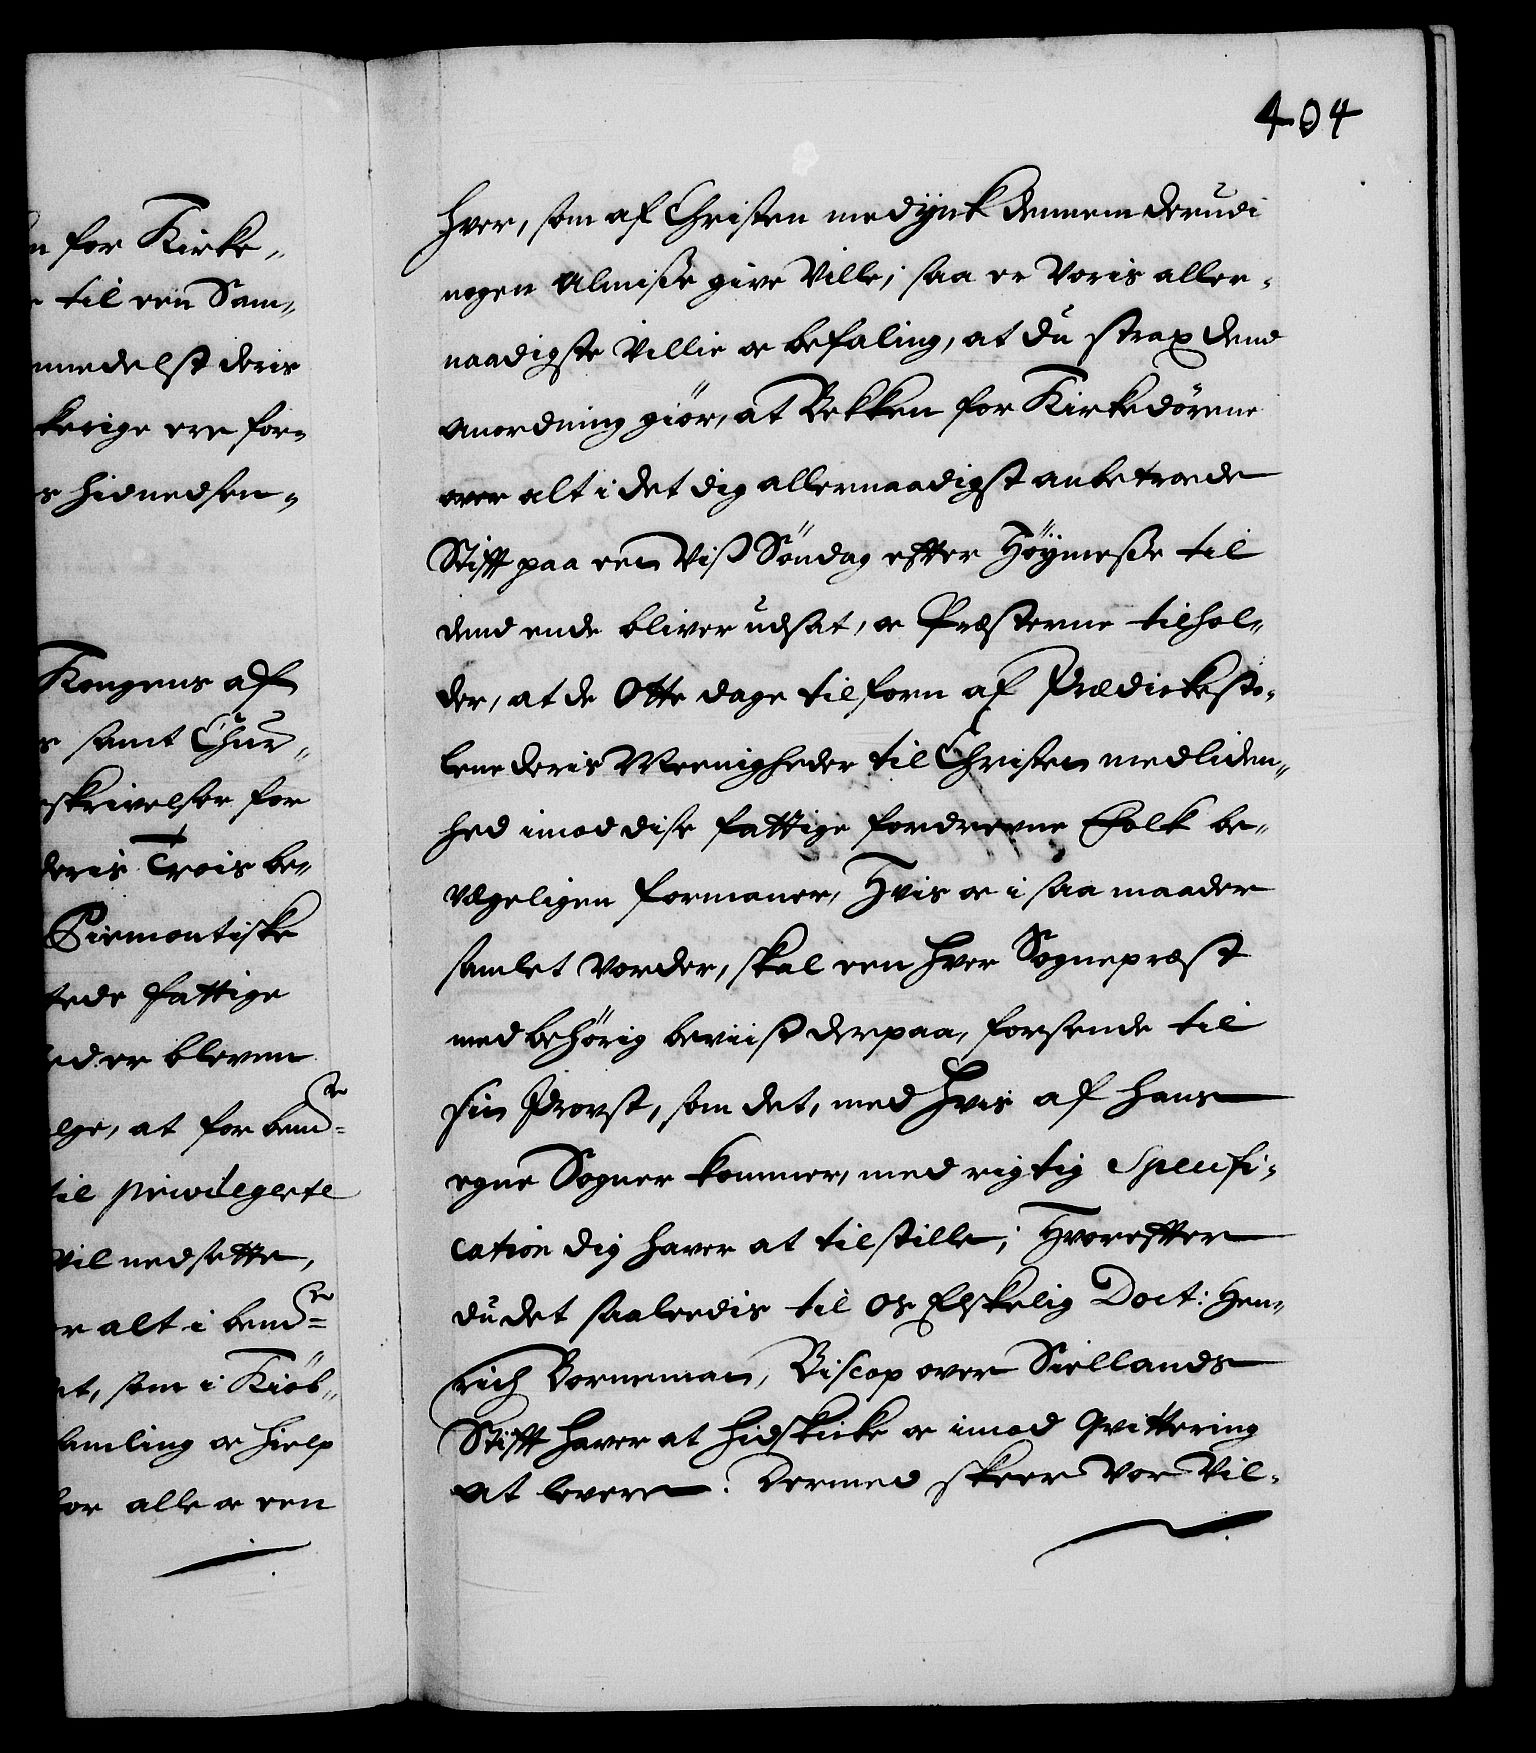 404
n for Kirke„
til een Sam„
mmedelst deris
kerige ere for„
s hidnedsen„
Kongens af
samt Chur„
skrivelser for
deris Trois be„
Piemontiske
tede fattige
eder bleven
lge, at for bemte
til privilegerte
vil nedsette,
er alt i bemte
et, som i Kiöb„
amling oc hielp
for alle oc een
hver, som af Christen medÿnk dennem derudi
nogen Almisse give Ville; saa er Voris aller„
naadigste Villie oc befaling, at du strax dend
anordning giör, at Bekken for Kirkedörrene
over alt i det dig allernaadigst anbetroede
Stifft paa een Viß Söndag efter Höÿmesse til
dend ende bliver udsat, oc Præsterne tilhol„
der, at de Otte dage tilforn af Prædickesto„
lene deris Meenigheder til Christen medliden„
hed imod disse fattige fordrevne Folk be„
vægeligen formaner, Hvis oc i saa maader
samlet vorder, skal een hver Sognepræst
med behörig beviist derpaa, forsende til
sin Provst, som det, med hvis af hans
egne Sogner kommer, med rigtig Specifi„
cation dig haver at tilstille; Hvorefter
du det saaleedis til Os Elskelig Doct: Hen„
rich Borneman, Biscop over Siellands
Stifft haver at hidskicke oc imod Qvittering
at levere. Dermed skeer Vor Vil„